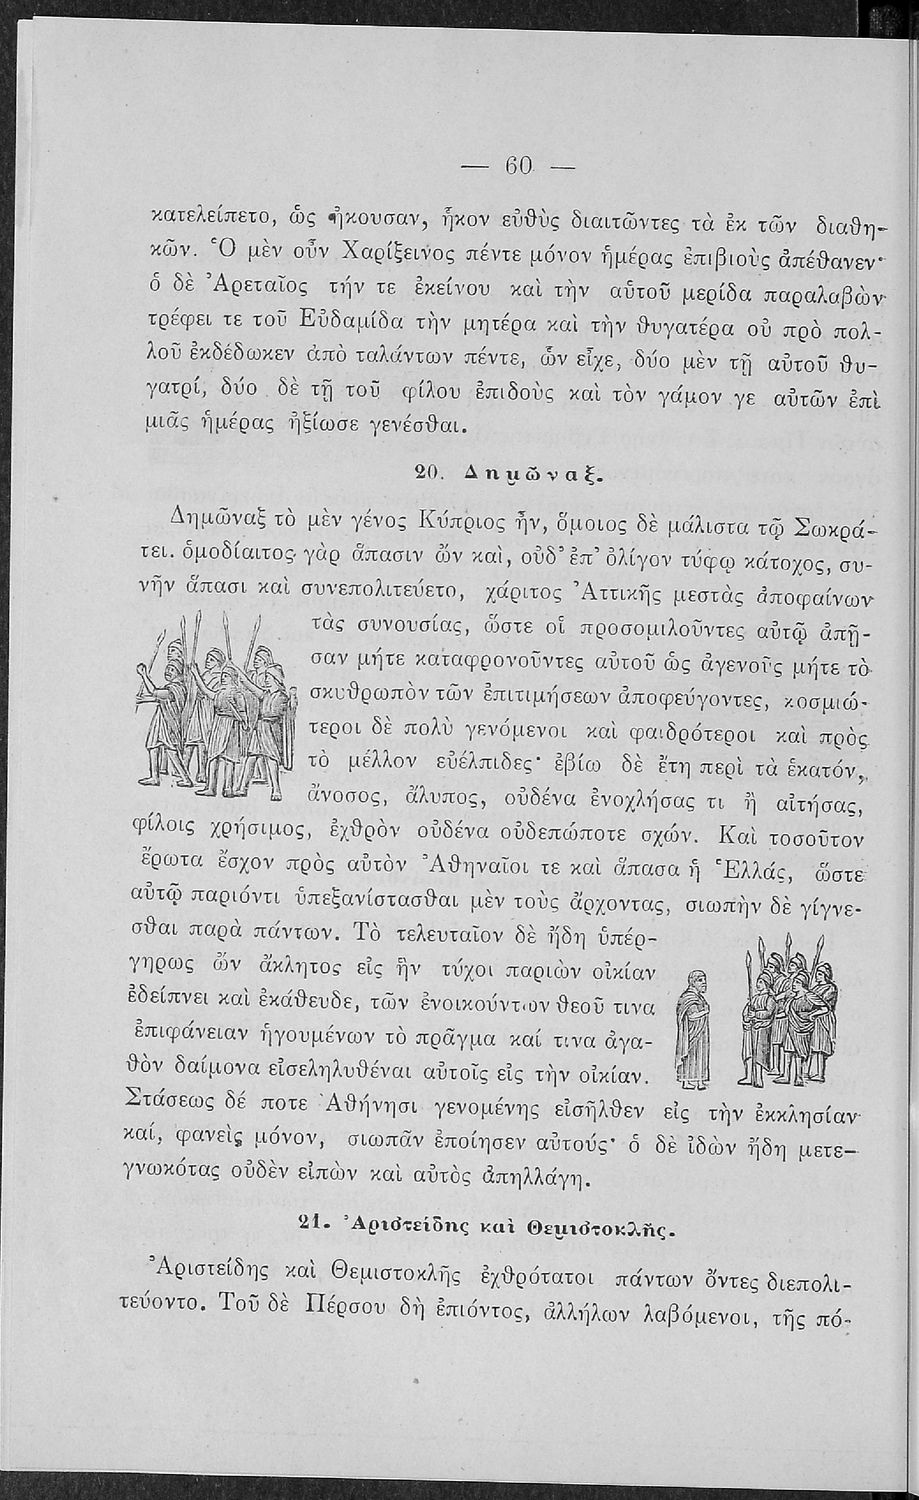 — 60 —
κατελείπετο, ὡς ἤκουσαν, ἧκον εὐθὺς διαιτῶντες τὰ ἐκ τῶν διαθη-
κῶν. Ὁ μὲν οὖν Χαρίξεινος πέντε μόνον ἡμέρας ἐπιβιοὺς ἀπέθανεν·
ὁ δὲ Ἀρεταῖος τήν τε ἐκείνου καὶ τὴν αὑτοῦ μερίδα παραλαβὼν
τρέφει τε τοῦ Εὐδαμίδα τὴν μητέρα καὶ τὴν θυγατέρα οὐ πρὸ πολ-
λοῦ ἐκδέδωκεν ἀπὸ ταλάντων πέντε, ὧν εἶχε, δύο μὲν τῇ αὑτοῦ θυ-
γατρί, δύο δὲ τῇ τοῦ φίλου ἐπιδοὺς καὶ τὸν γάμον γε αὐτῶν ἐπὶ
μιᾶς ἡμέρας ἠξίωσε γενέσθαι.
20. Δημῶναξ.
Δημῶναξ τὸ μὲν γένος Κύπριος ἦν, ὅμοιος δὲ μάλιστα τῷ Σωκρά-
τει. ὁμοδίαιτος γὰρ ἅπασιν ὢν καὶ, οὐδ' ἐπ' ὀλίγον τύφῳ κάτοχος, συ-
νῆν ἅπασι καὶ συνεπολιτεύετο, χάριτος Ἀττικῆς μεστὰς ἀποφαίνων
τὰς συνουσίας, ὥστε οἱ προσομιλοῦντες αὐτῷ ἀπῇ-
σαν μήτε καταφρονοῦντες αὐτοῦ ὡς ἀγενοῦς μήτε τὸ
σκυθρωπὸν τῶν ἐπιτιμήσεων ἀποφεύγοντες, κοσμιώ-
τεροι δὲ πολὺ γενόμενοι καὶ φαιδρότεροι καὶ πρὸς
τὸ μέλλον εὐέλπιδες· ἐβίω δὲ ἔτη περὶ τὰ ἑκατόν,
ἄνοσος, ἄλυπος, οὐδένα ἐνοχλήσας τι ἢ αἰτήσας,
φίλοις χρήσιμος, ἐχθρὸν οὐδένα οὐδεπώποτε σχών. Καὶ τοσοῦτον
ἔρωτα ἔσχον πρὸς αὐτὸν Ἀθηναῖοι τε καὶ ἅπασα ἡ Ἑλλάς, ὥστε
αὐτῷ παριόντι ὑπεξανίστασθαι μὲν τοὺς ἄρχοντας, σιωπὴν δὲ γίγνε-
σθαι παρὰ πάντων. Τὸ τελευταῖον δὲ ἤδη ὑπέρ-
γηρως ὢν ἄκλητος εἰς ἣν τύχοι παριὼν οἰκίαν
ἐδείπνει καὶ ἐκάθευδε, τῶν ἐνοικούντων θεοῦ τινα
ἐπιφάνειαν ἡγουμένων τὸ πρᾶγμα καί τινα ἀγα-
θὸν δαίμονα εἰσεληλυθέναι αὐτοῖς εἰς τὴν οἰκίαν.
Στάσεως δέ ποτε Ἀθήνησι γενομένης εἰσῆλθεν εἰς τὴν ἐκκλησίαν
καί, φανεὶς μόνον, σιωπᾶν ἐποίησεν αὐτούς· ὁ δὲ ἰδὼν ἤδη μετε-
γνωκότας οὐδὲν εἰπὼν καὶ αὐτὸς ἀπηλλάγη.
21. Ἀριστείδης καὶ Θεμιστοκλῆς.
Ἀριστείδης καὶ Θεμιστοκλῆς ἐχθρότατοι πάντων ὄντες διεπολι-
τεύοντο. Τοῦ δὲ Πέρσου δὴ ἐπιόντος, ἀλλήλων λαβόμενοι, τῆς πό-